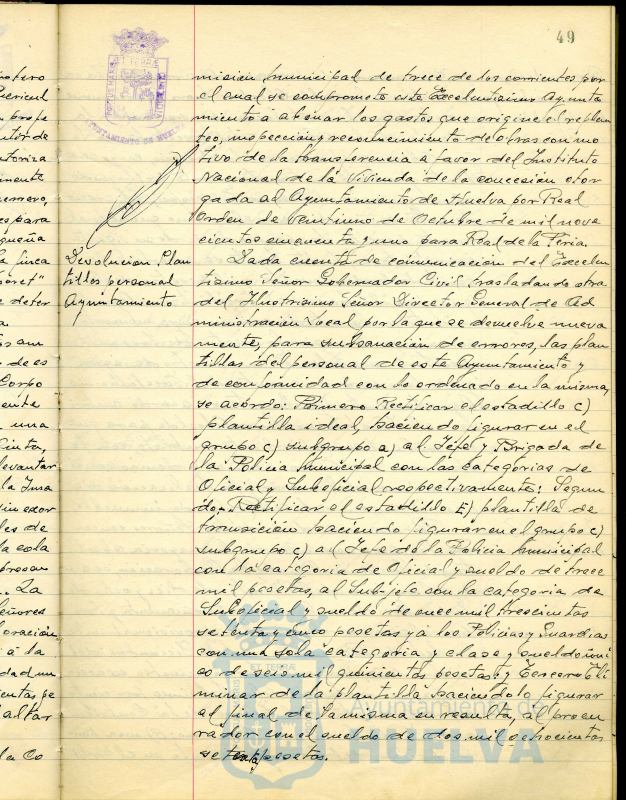 49
misión municipal de trece de los corrientes por
el cual se compromete este Excelentisimo Ayunta
miento a abonar los gastos que origine el replan
teo, inspección y reconocimiento de obras con mo
tivo de la transferencia a favor del Instituto
Nacional de la Vivienda de la concesión otor
gada al Ayuntamiento de Huelva por Real
Orden de veintiuno de Octubre de mil nove
cientos cincuenta y uno para Real de la Feria.
Devolución Plan
tillas personal
Ayuntamiento
Dada cuenta de comunicación del Excelen
tisimo Señor Gobernador Civil trasladando otra
del Ilustrisimo Señor Director General de Ad
ministración Local por la que se devuelve nueva
mente, para subsanación de errores, las plan
tillas del personal de este Ayuntamiento y
de conformidad con lo ordenado en la misma,
se acordó: Primero Rectificar el estadillo C)
plantilla ideal, haciendo figurar en el
grupo C) subgrupo a) al Jefe y Brigada de
la Policia Municipal con las categorias de
Oficial y Suboficial respectivamente: Segun
do.- Rectificar el estadillo E) plantilla de
transición haciendo figurar en el grupo C)
subgrupo c) al Jefe de la Policia Municipal
con la categoria de Oficial y sueldo de trece
mil pesetas, al Sub-jefe con la categoria de
Suboficial y sueldo de once mil trescientas
setenta y cinco pesetas y a los Policias y Guardias
con una sola categoria y clase y sueldo úni
co de seis mil quinientas pesetas: y Tercero Eli
minar de la plantilla haciendolo figurar
al final de la misma en resulta, al procu
rador con el sueldo de dos mil ochocientas
setenta pesetas.
Ayuntamiento de
HUELVA